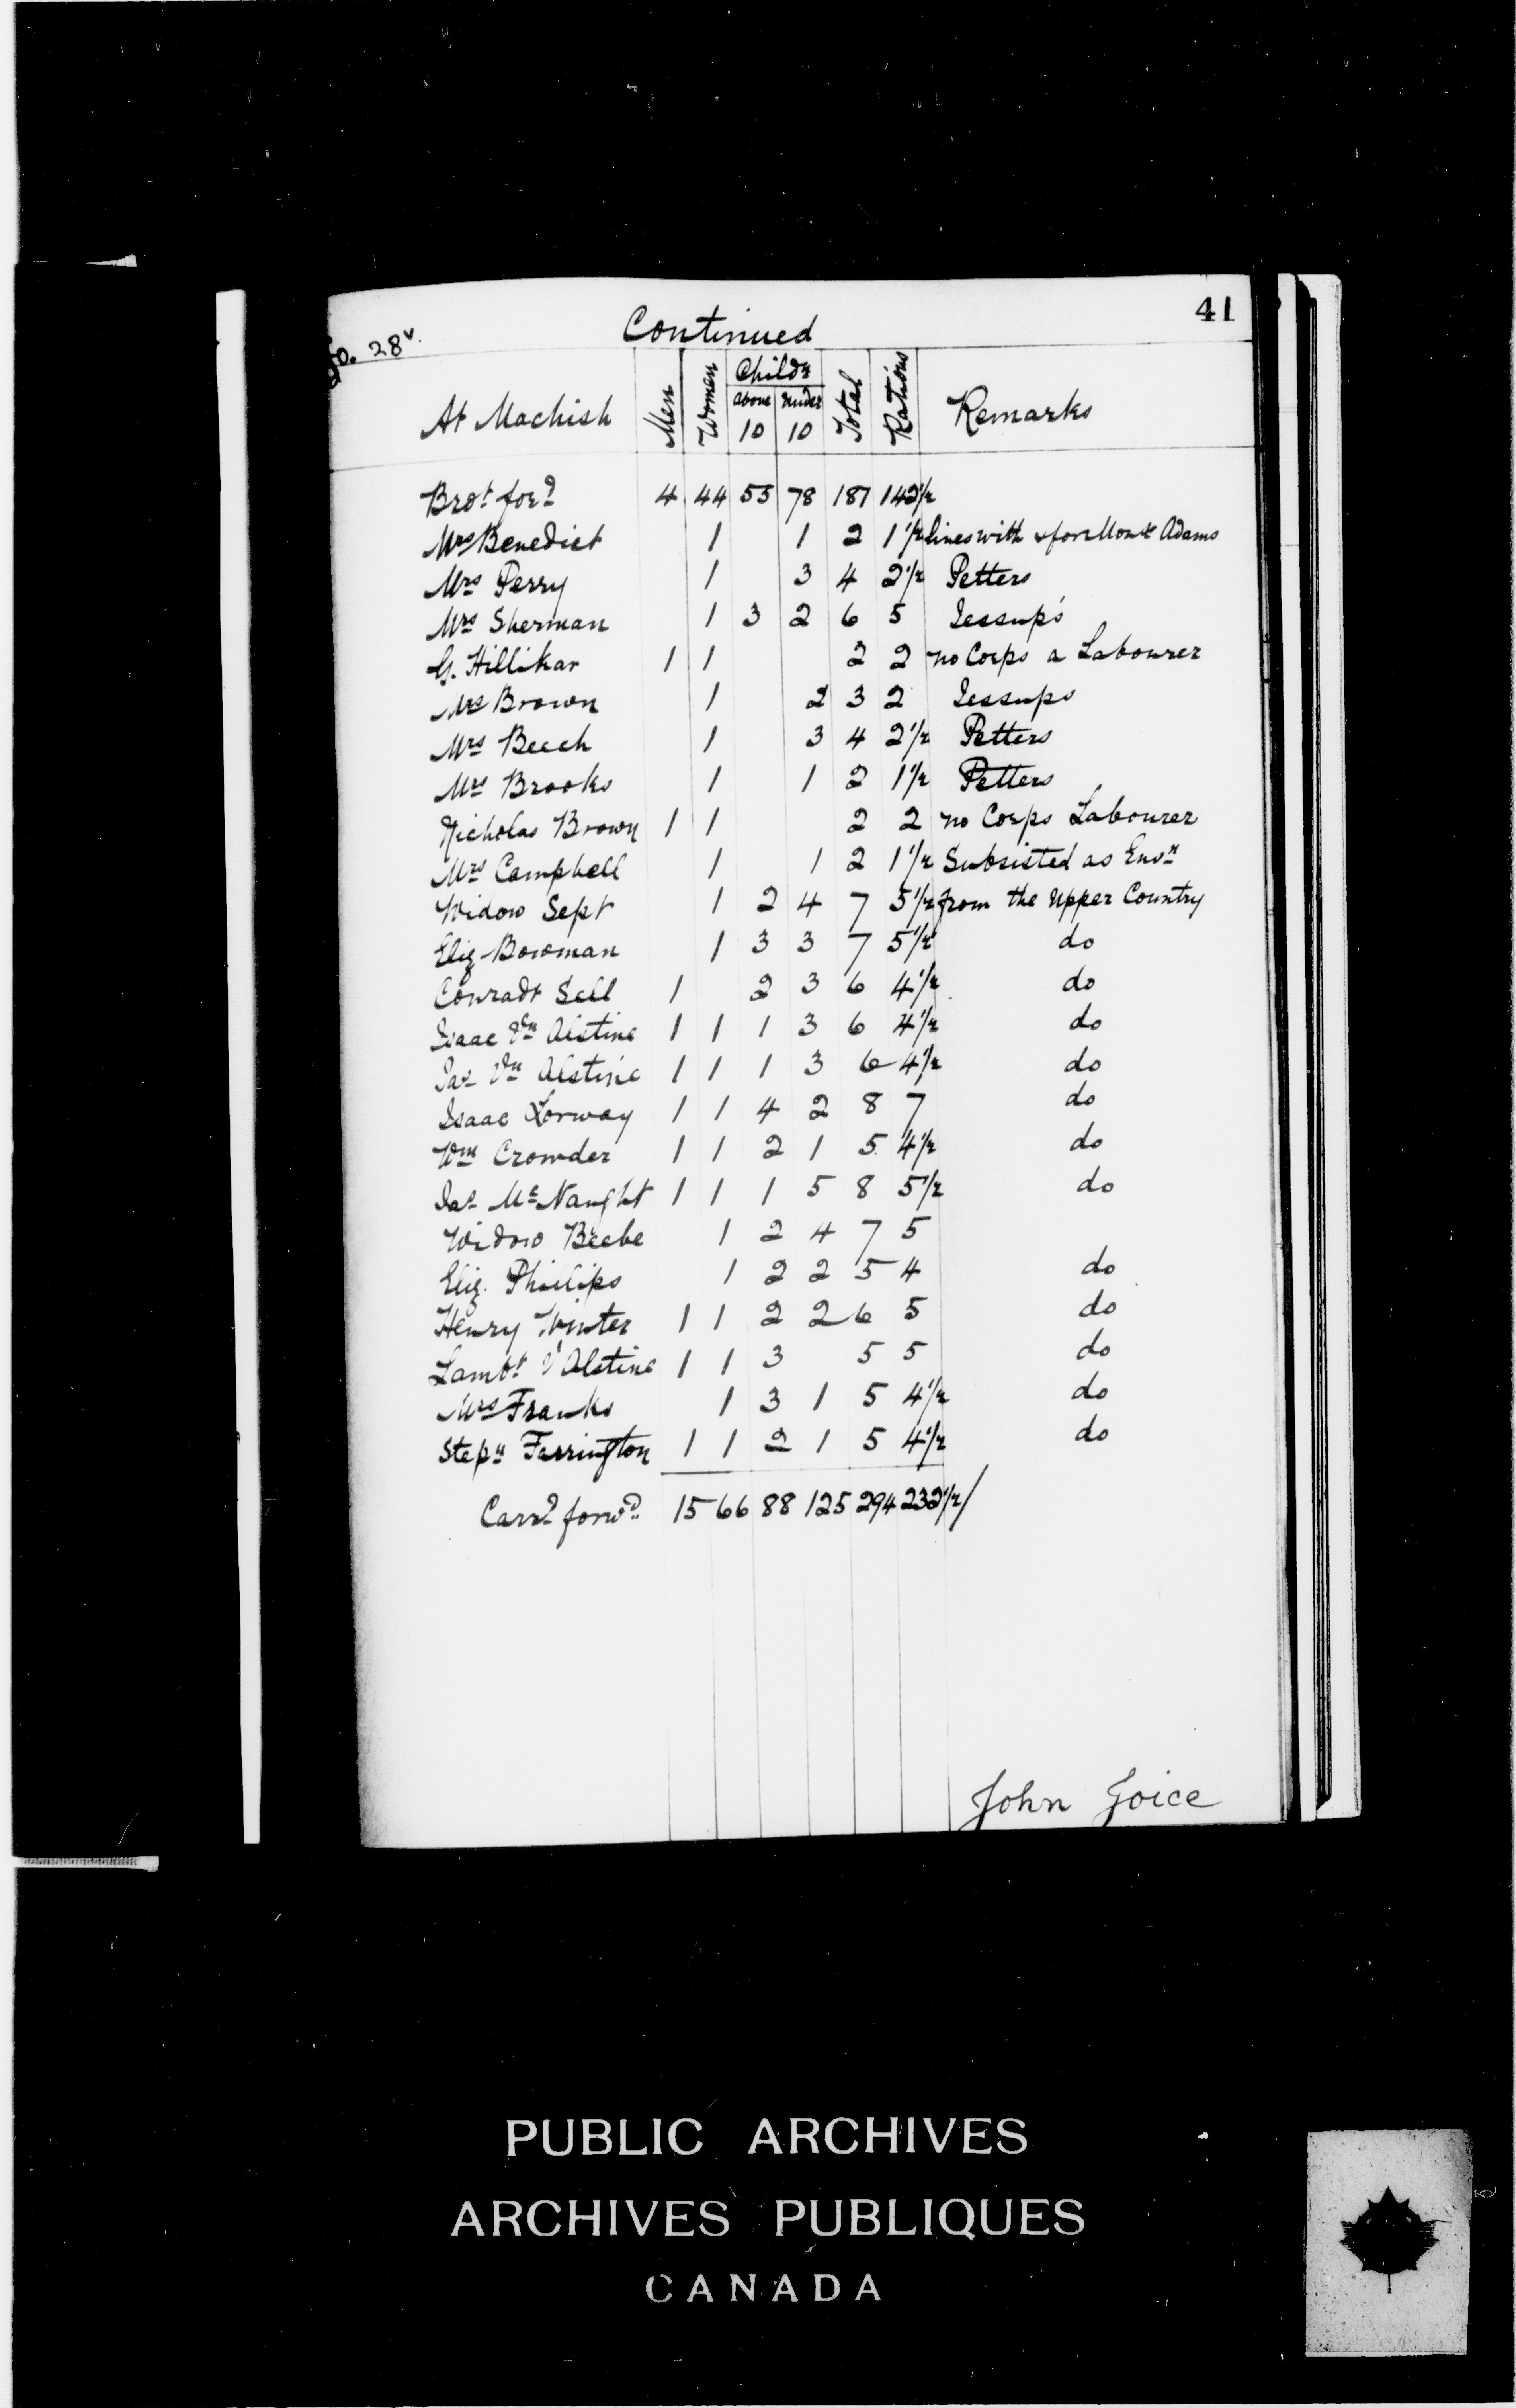 41
fo. 28v.
Continued
At Machish Men Women Childn above 10 under 10 Total Rations Remarks
Brot. ford 4 44 53 78 181 142½
Mrs Benedict 1 1 2 1½ lives with & for Monsr Adams
Mrs Perry 1 3 4 2½ Petters
Mrs Sherman 1 3 2 6 5 Jessup's
G. Hillikar 1 1 2 2 no Corps a Labourer
Mrs Brown 1 2 3 2 Jessups
Mrs Beech 1 3 4 2½ Petters
Mrs Brooks 1 1 2 1½ Petters
Nicholas Brown 1 1 2 2 no Corps Labourer
Mrs Campbell 1 1 2 1½ Subsisted as Ensn
Widow Sept 1 2 4 7 5½ from the Upper Country
Eliz Bowman 1 3 3 7 5½ do
Conradt Sell 1 2 3 6 4½ do
Isaac Vn Alstine 1 1 1 3 6 4½ do
Jas Vn Alstine 1 1 1 3 6 4½ do
Isaac Lorway 1 1 4 2 8 7 do
Wm Crowder 1 1 2 1 5 4½ do
Jas McNaught 1 1 1 5 8 5½ do
Widow Beebe 1 2 4 7 5
Eliz. Phillips 1 2 2 5 4 do
Henry Winter 1 1 2 2 6 5 do
Lambt V Alstine 1 1 3 5 5 do
Mrs Franks 1 3 1 5 4½ do
Stepn Farrington 1 1 2 1 5 4½ do
Carrd forwd. 15 66 88 125 294 232½/
John Joice
PUBLIC ARCHIVES
ARCHIVES PUBLIQUES
CANADA